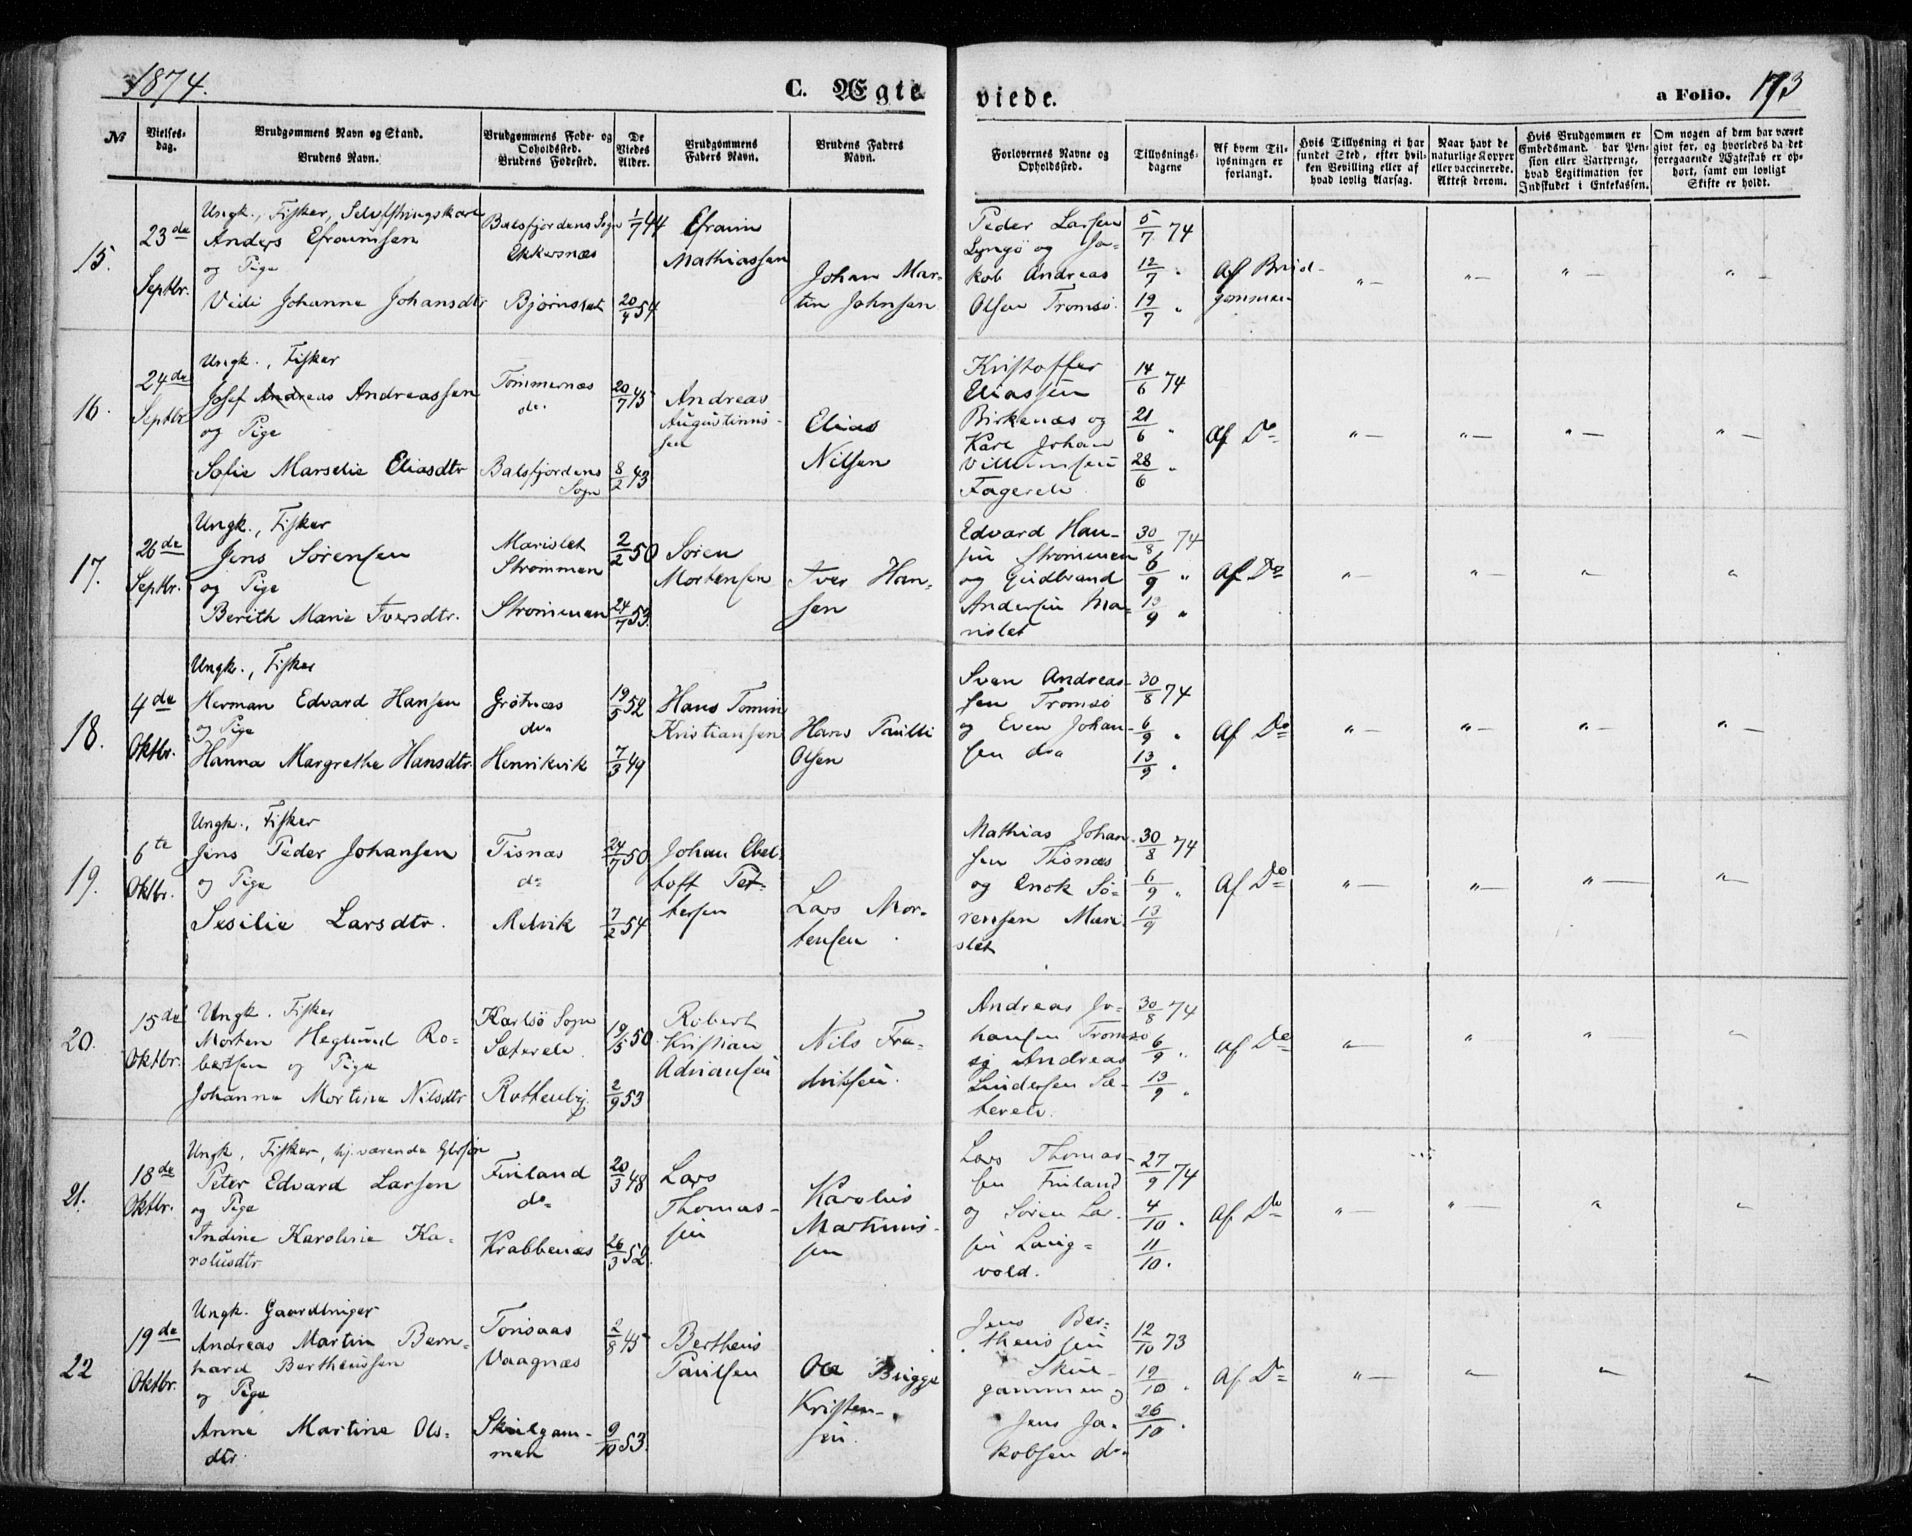 1874.
C. Ægte viede.
a Folio. 173
No
Vielses-dag.
Brudgommens Navn og Stand.
Brudens Navn.
Brudgommens Føde- og Opholdssted.
Brudens Fødested.
De Viedes Alder.
Brudgommens Faders Navn.
Brudens Faders Navn.
Forlovernes Navne og Opholdssted.
Tillysnings-dagene
Af hvem Tillysningen er forlangt.
Hvis Tillysning ei har fundet Sted, efter hvilken Bevilling eller af hvad lovlig Aarsag.
Naar havt de naturlige Kopper eller vaccinerede. Attest derom.
Hvis Brudgommen er Embedsmand, har Pension eller Vartpenge, hvad Legitimation for Indskudt i Enkekassen.
Om nogen af dem har været givt for, og hvorledes da det foregaaende Ægteskab er ophørt, samt om lovligt Skifte er holdt.
15. 23de Septbr.
Ungk., Fisker,
Anders Efraimsen
og Pige
Vidi Johanne Johansdtr
Balsfjordens Sogn
Ekkersnæs
1/7 44
20/4 54
Efraim
Mathiassen
Johan Mar-
tin Johnsen
Peder Larsen
Lyngø og Ja-
kob Andreas
Olsen Tromsø
5/7 74
12/7 "
19/7 "
Af Brud-
gommen
" —
" —
" —
"
16. 24de Septbr
Ungk., Fisker
Josef Andreas Andreassen
og Pige
Sofie Marselie Eliasdtr
Tommernæs
do.
Balsfjordens
Sogn
20/7 45
8/2 43
Andreas
Augustinus-
sen
Elias
Nilsen
Kristoffer
Eliassen
Birkenæs og
Karl Johan
Fagerelv
14/6 74
21/6 "
28/6 "
Af Do
" —
" —
" —
" —
17. 26de Septbr.
Ungk., Fisker
Jens Sørensen
og Pige
Berith Marie Iversdtr.
Marislet
Strømmen
Strømmen
2/2 50
24/7 53.
Søren
Mortensen
Iver Han-
sen
Edvard Han-
sen Strømmen
og Gudbrand
Andersen Ma-
rislet
30/8 74
6/9 "
13/9 "
Af Do
" —
" —
" —
"
18. 4de Oktbr.
Ungk., Fisker
Herman Edvard Hansen
og Pige
Hanna Margrethe Hansdtr.
Grøtnæs
do
Henrikvik
19/5 52
7/3 49
Hans Tomin
Kristiansen
Hans Paulli
Olsen
Sven Andreas-
sen Tromsø
og Even Johan-
sen do
30/8 74
6/9 "
13/9 "
Af Do
" —
" —
" —
" —
19. 6te Oktbr.
Ungk., Fisker
Jens Peder Johansen
og Pige
Sesilie Larsdtr.
Tisnæs
do
Melvik
24/7 50
7/2 54
Johan Ebel-
toft Pet-
tersen
Lars Mor-
tensen.
Mathias Johan-
sen Thisnæs
og Enok Sø-
rensen Mari-
slet
30/8 74
6/9 "
13/9
Af Do
" —
" —
" —
" —
20. 15de Oktbr.
Ungk. Fisker
Morten Heglund Ro-
bertsen og Pige
Johanna Mortine Nilsdtr
Karlsø Sogn
Sæterelv.
19/5 50
2/9 53
Robert
Kristian
Adriansen
Nils Fre-
driksen.
Andreas Jo-
hansen Tromsø
og Andreas
Lindersen Sæ-
terelv.
30/8 74
6/9 "
13/9 "
Af Do
" —
" —
"
"
21. 18de Oktbr.
Ungk, Fisker,
Peter Edvard Larsen
og Pige
Indine Karoline Ka-
rolusdtr
Finland
do
Krabbenæs
20/3 48
26/3 52.
Lars
Thomas-
sen
Karolus
Martinus-
sen
Lars Thomas-
sen Finland
og Søren Lar-
sen Lang-
vold.
27/9 74
4/10 "
11/10 "
Af Do
" —
" —
"
"
22 19de Oktbr.
Ungk. Gaardbruger
Andreas Martin Bern-
hard Bertheussen
og Pige
Anne Martine Ols-
dtr
Tonsaas
Vaagnæs
Skulgam-
men
2/8 45
9/10 53.
Bertheus
Paulsen
Ole Brigge
Kristen-
sen.
Jens Ber-
theussen
Skul-
gammen og
Jens Ja-
kobsen do
12/10 73
19/10 "
26/10 "
Af Do
" —
" —
" —
"